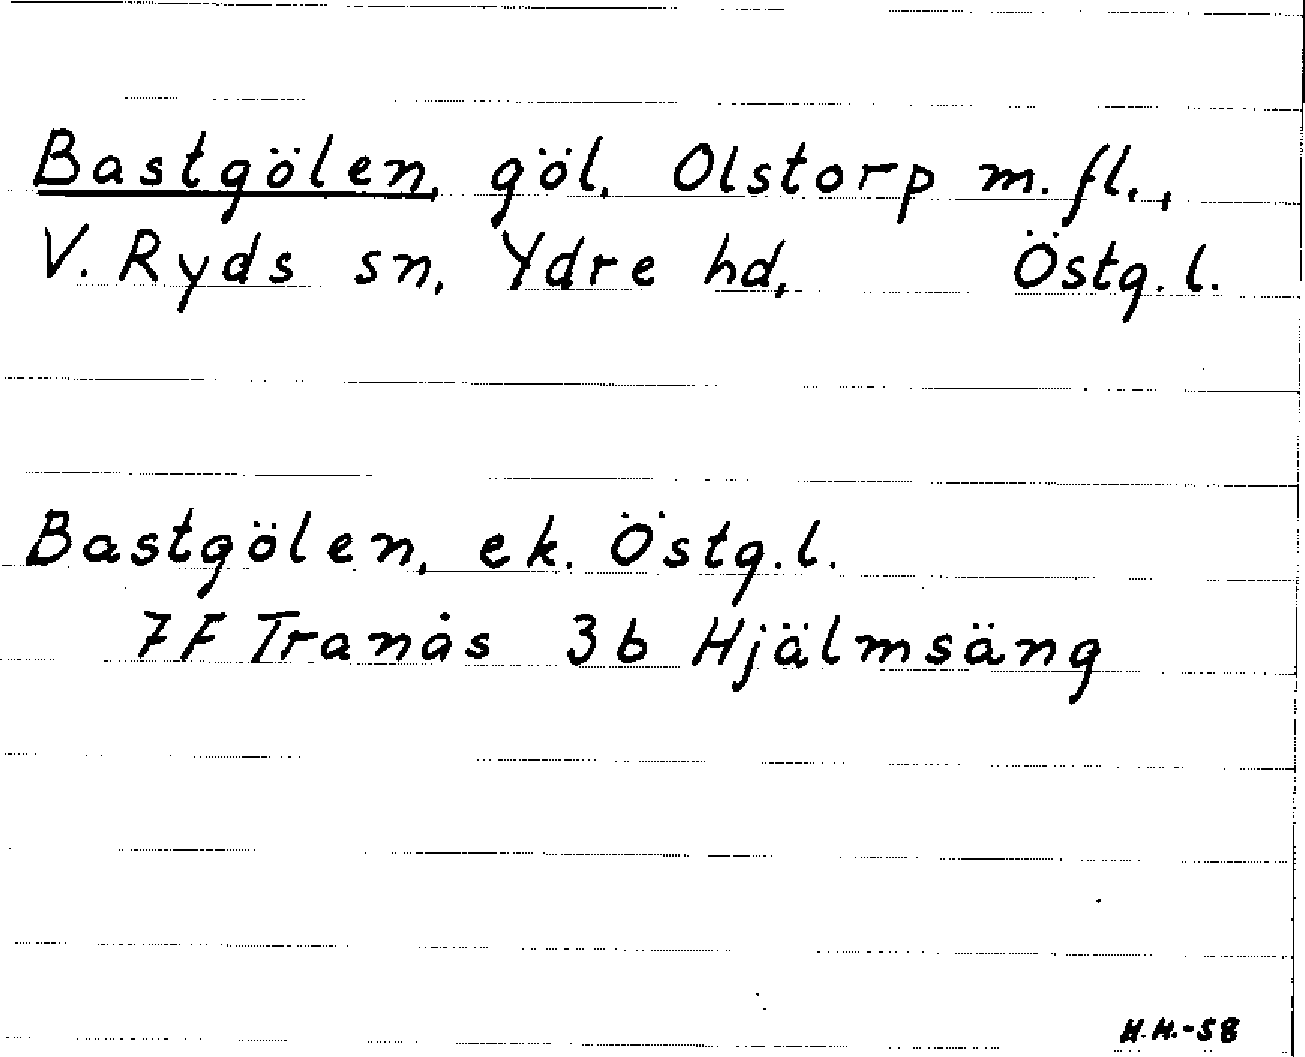 Bastgölen, göl, Olstorp m.fl.,
V. Ryds sn, Ydre hd, Östg.l.
Bastgölen, ek. Östg.l.
7F Tranås 3b Hjälmsäng
H.H.-58